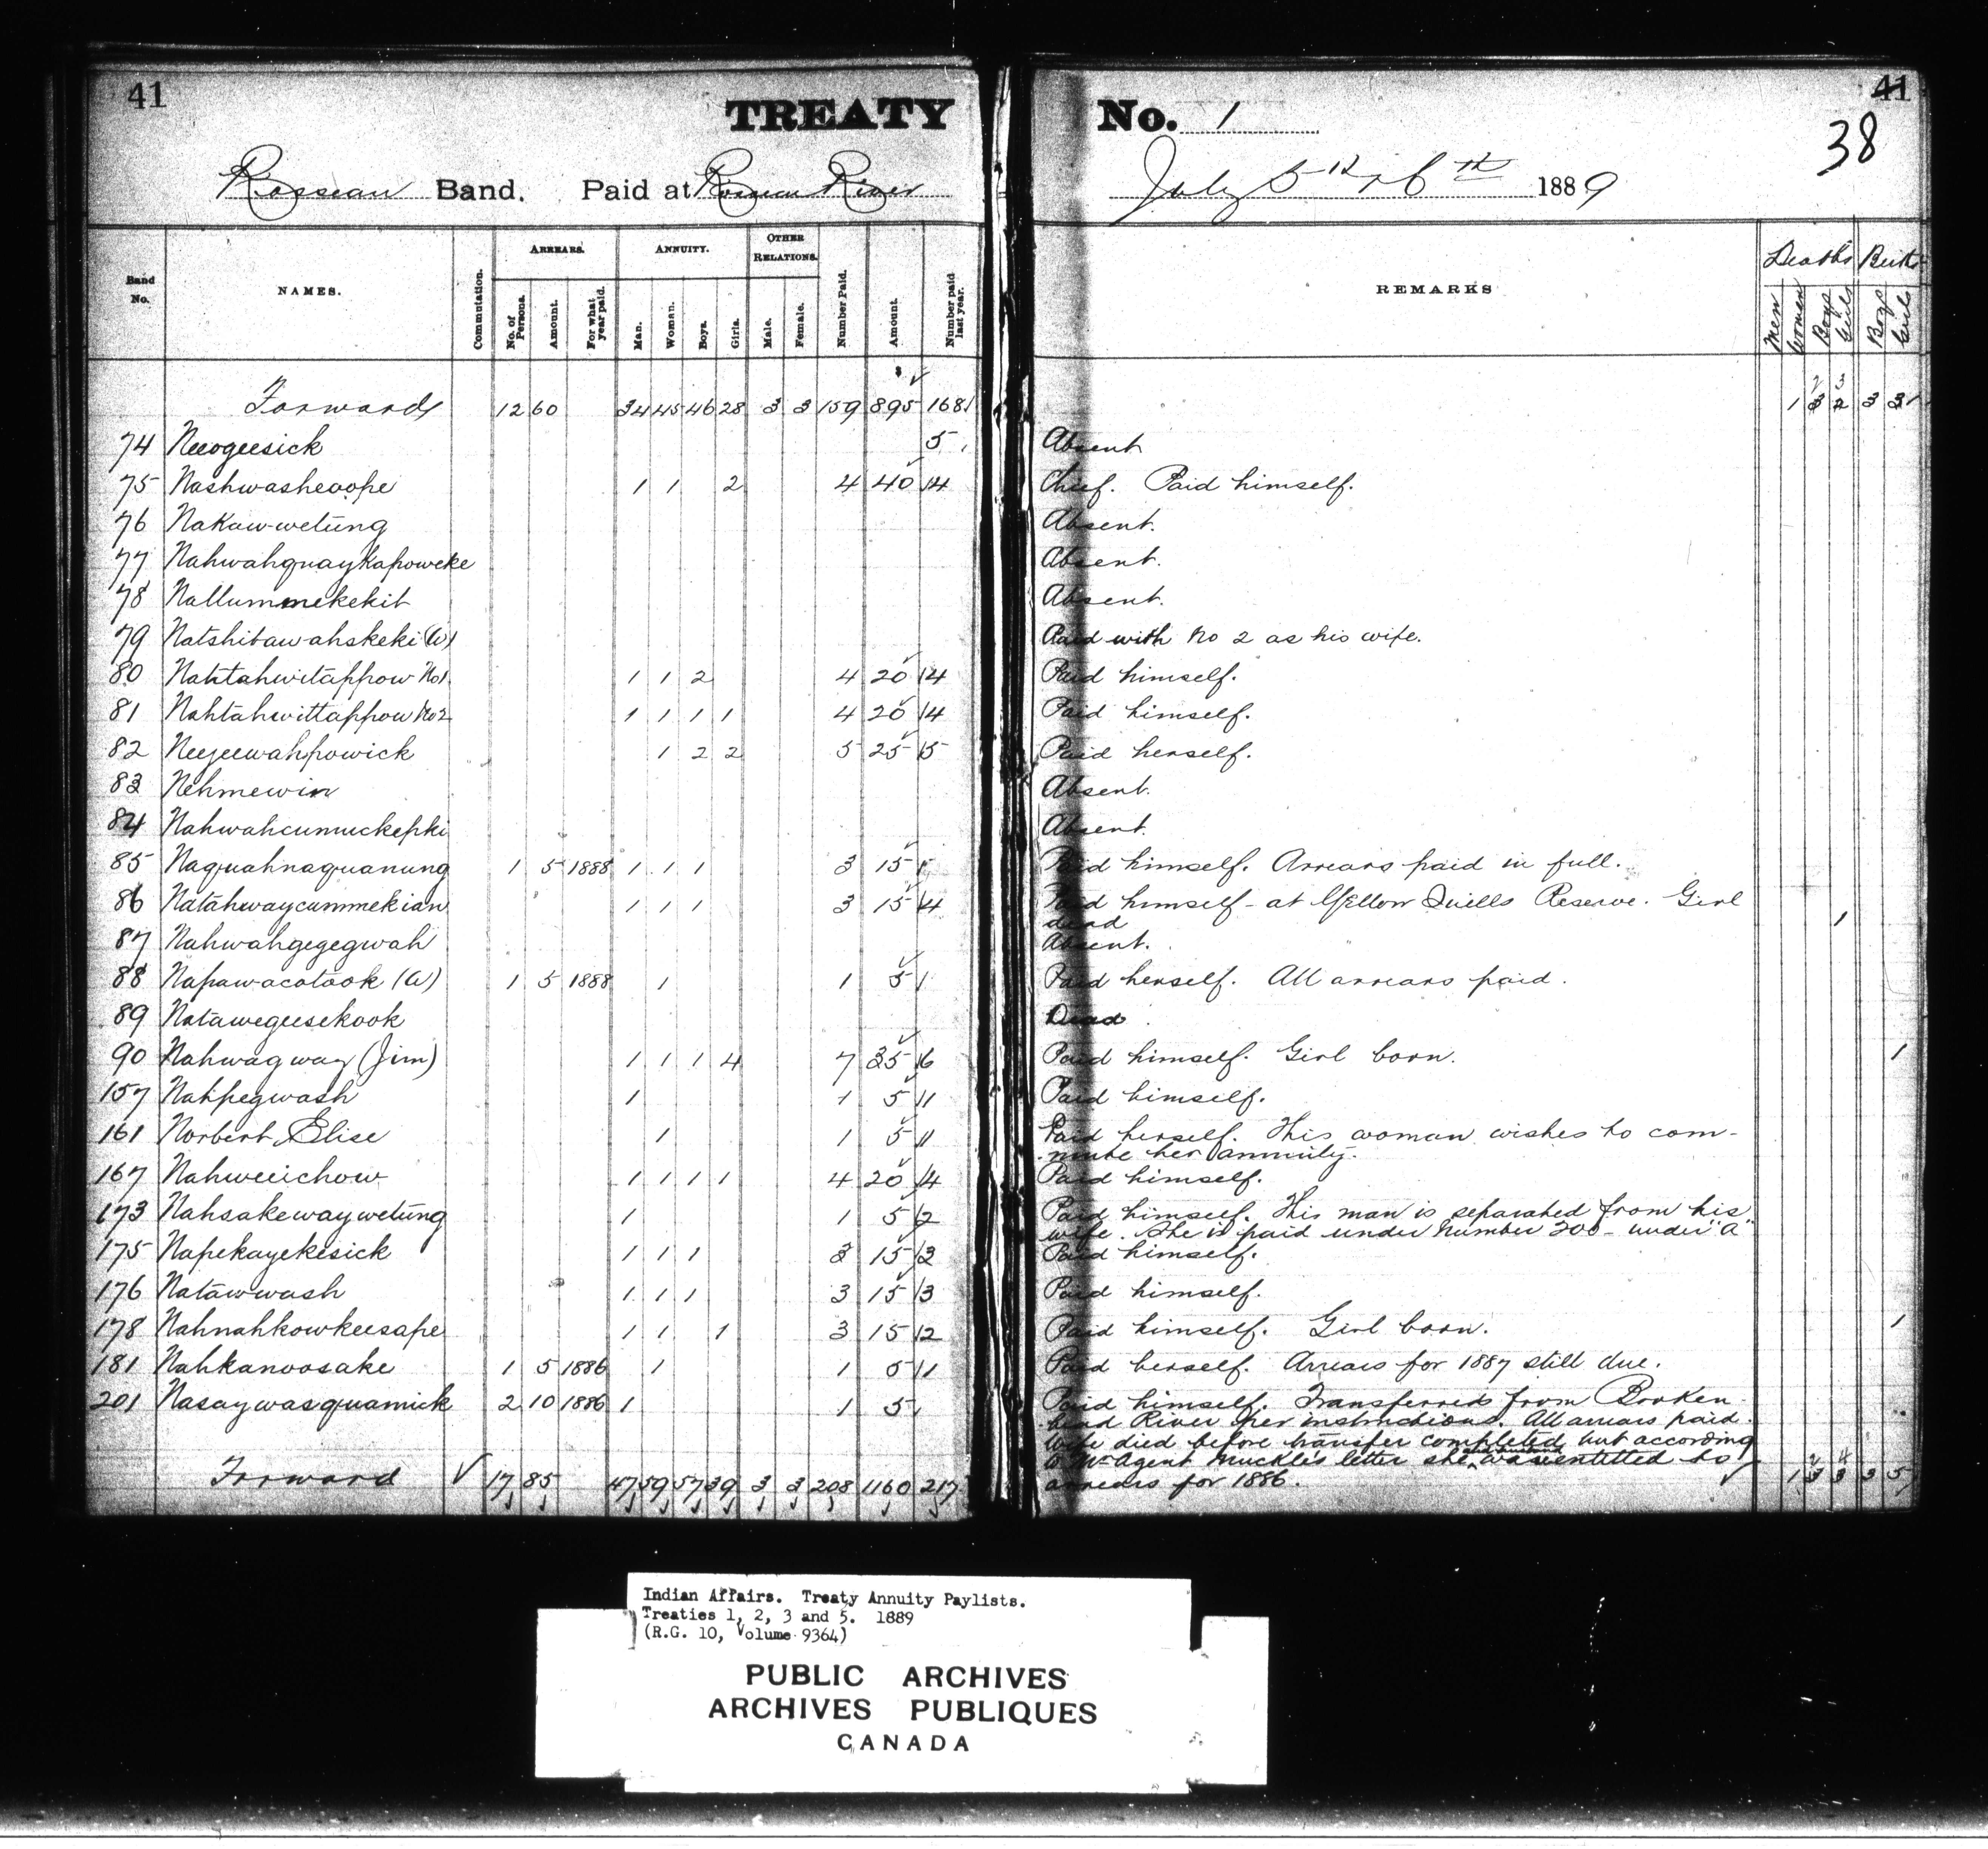 41
TREATY No. 1
41
38
Rosseau Band. Paid at Roseau River July 5th & 6th 1889
Band No. NAMES. Commutation. ARREARS. No. of Persons. Amount. For what year paid. ANNUITY. Man. Woman. Boys. Girls. OTHER RELATIONS. Male. Female. Number Paid. Amount. Number paid last year. REMARKS Deaths Men Women Boys Girls Births Boys Girls
Forwards 12 60 34 45 46 28 3 3 159 895 168 1 3 3
74 Neeogeesick 5 Absent
75 Nashwasheoope 1 1 2 4 40 4 Chief. Paid himself.
76 Nakaw-wetung Absent.
77 Nahwahquaykapoweke Absent.
78 Nallummekekit Absent.
79 Natshitawahskeki (W) Paid with No 2 as his wife.
80 Nahtahwitappow No1 1 1 2 4 20 4 Paid himself.
81 Nahtahwittappow No2 1 1 1 1 4 20 4 Paid himself.
82 Neejeewahpowick 1 2 2 5 25 5 Paid herself.
83 Nehmewin Absent.
84 Nahwahcumuckepki Absent.
85 Naquahnaquanung 1 5 1888 1 1 1 3 15 Paid himself. Arrears paid in full.
86 Natahwaycummekian 1 1 1 3 15 4 Paid himself - at Yellow Quills Reserve. Girl
dead 1
87 Nahwahgegegwah Absent.
88 Napawacotook (W) 1 5 1888 1 1 5 1 Paid herself. All arrears paid.
89 Natawegeesekook Dead.
90 Nahwagway (Jim) 1 1 1 4 7 35 6 Paid himself. Girl born. 1
157 Nahpegwash 1 1 5 1 Paid himself.
161 Norbert, Elise 1 1 5 1 Paid herself. This woman wishes to com-
mute her annuity.
167 Nahweeichow 1 1 1 1 4 20 4 Paid himself.
173 Nahsakewaywetung 1 1 5 2 Paid himself. This man is separated from his
wife. She is paid under Number 200 - under "A"
175 Napekayekesick 1 1 1 3 15 3 Paid himself.
176 Natawwash 1 1 1 3 15 3 Paid himself.
178 Nahnahkowkeesape 1 1 1 3 15 2 Paid himself. Girl born. 1
181 Nahkanoosake 1 5 1886 1 1 5 1 Paid herself. Arrears for 1887 still due.
201 Nasaywasquamick 2 10 1886 1 1 5 Paid himself. Transferred from Broken-
head River per instructions. All arrears paid.
Wife died before transfer completed but according
to Mr Agent Muckle's letter she and husband was entitled to
arrears for 1886.
Forward 17 85 47 59 57 39 3 3 208 1160 217 1 3 5
Indian Affairs. Treaty Annuity Paylists.
Treaties 1, 2, 3 and 5. 1889
(R.G. 10, Volume 9364)
PUBLIC ARCHIVES
ARCHIVES PUBLIQUES
CANADA